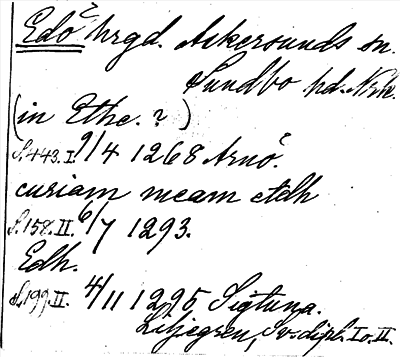 Edö hrgd. Askersunds sn.
Sundbo hd. Nke.
(in Ethe. ?)
S. 443. I. 9/4 1268 Arnö.
curiam meam etdh
S. 158. II. 6/7 1293.
Edh.
S. 199. II. 4/11 1295 Sigtuna.
Liljegren, Sv. dipl. I o. II.